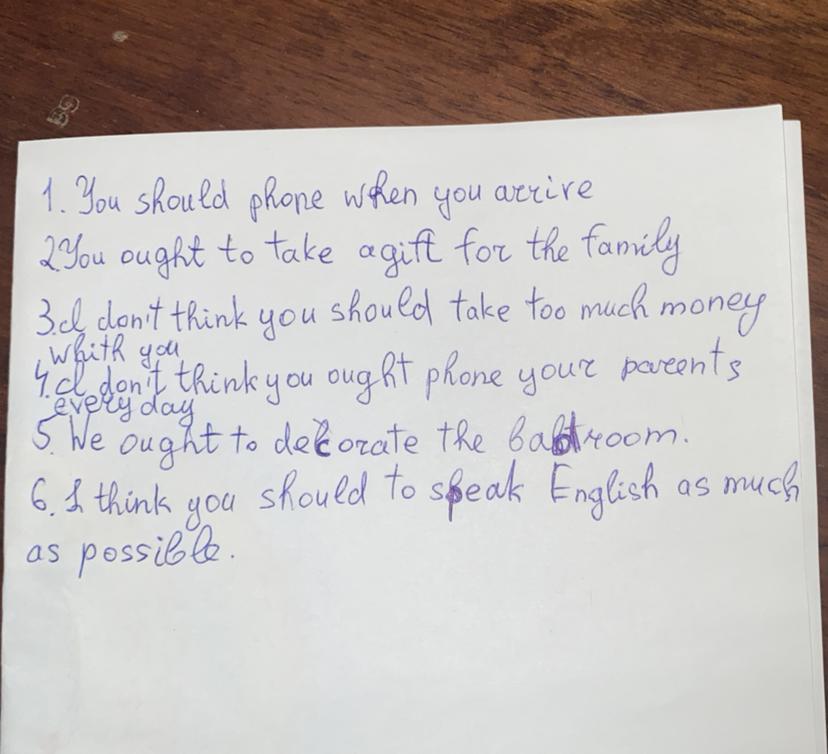 1. You should phone when you arrive
2. You ought to take a gift for the family
3. I don't think you should take too much money
whith you
4. I don't think you ought phone your parents
every day
5. We ought to decorate the room.
6. I think you should to speak English as much
as possible.